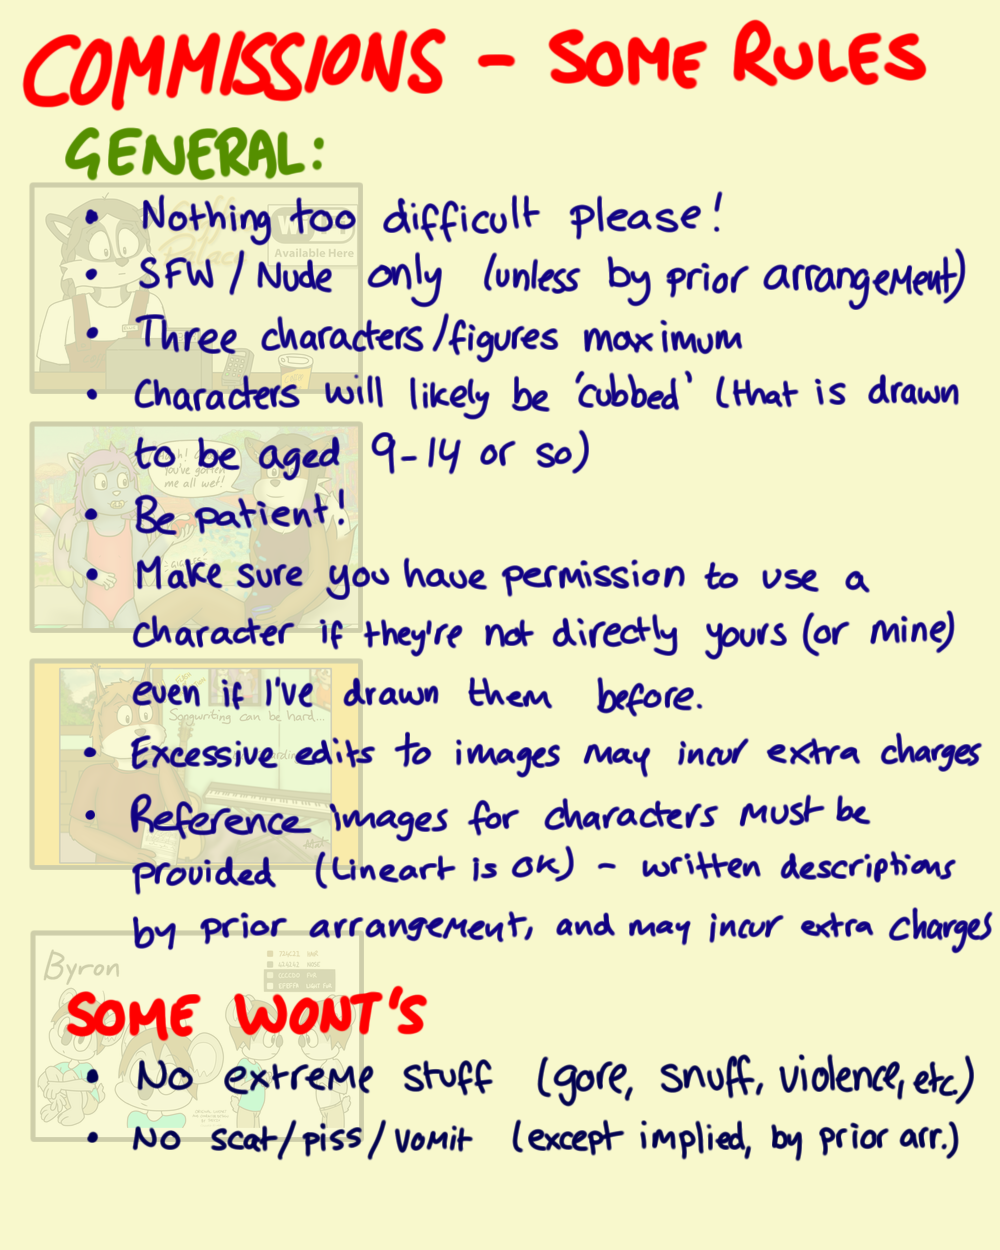 COMMISSIONS - SOME RULES
GENERAL:
• Nothing too difficult please!
• SFW / Nude only (unless by prior arrangement)
• Three characters/figures maximum
• Characters will likely be 'cubbed' (that is drawn
to be aged 9-14 or so)
• Be patient!
• Make sure you have permission to use a
character if they're not directly yours (or mine)
even if I've drawn them before.
• Excessive edits to images may incur extra charges
• Reference images for characters must be
provided (Lineart is OK) - written descriptions
by prior arrangement, and may incur extra charges
SOME WONT'S
• No extreme stuff (gore, snuff, violence, etc)
• No scat/piss/vomit (except implied, by prior arr.)
Available Here
You've gotten
me all wet!
Songwriting can be hard...
Byron